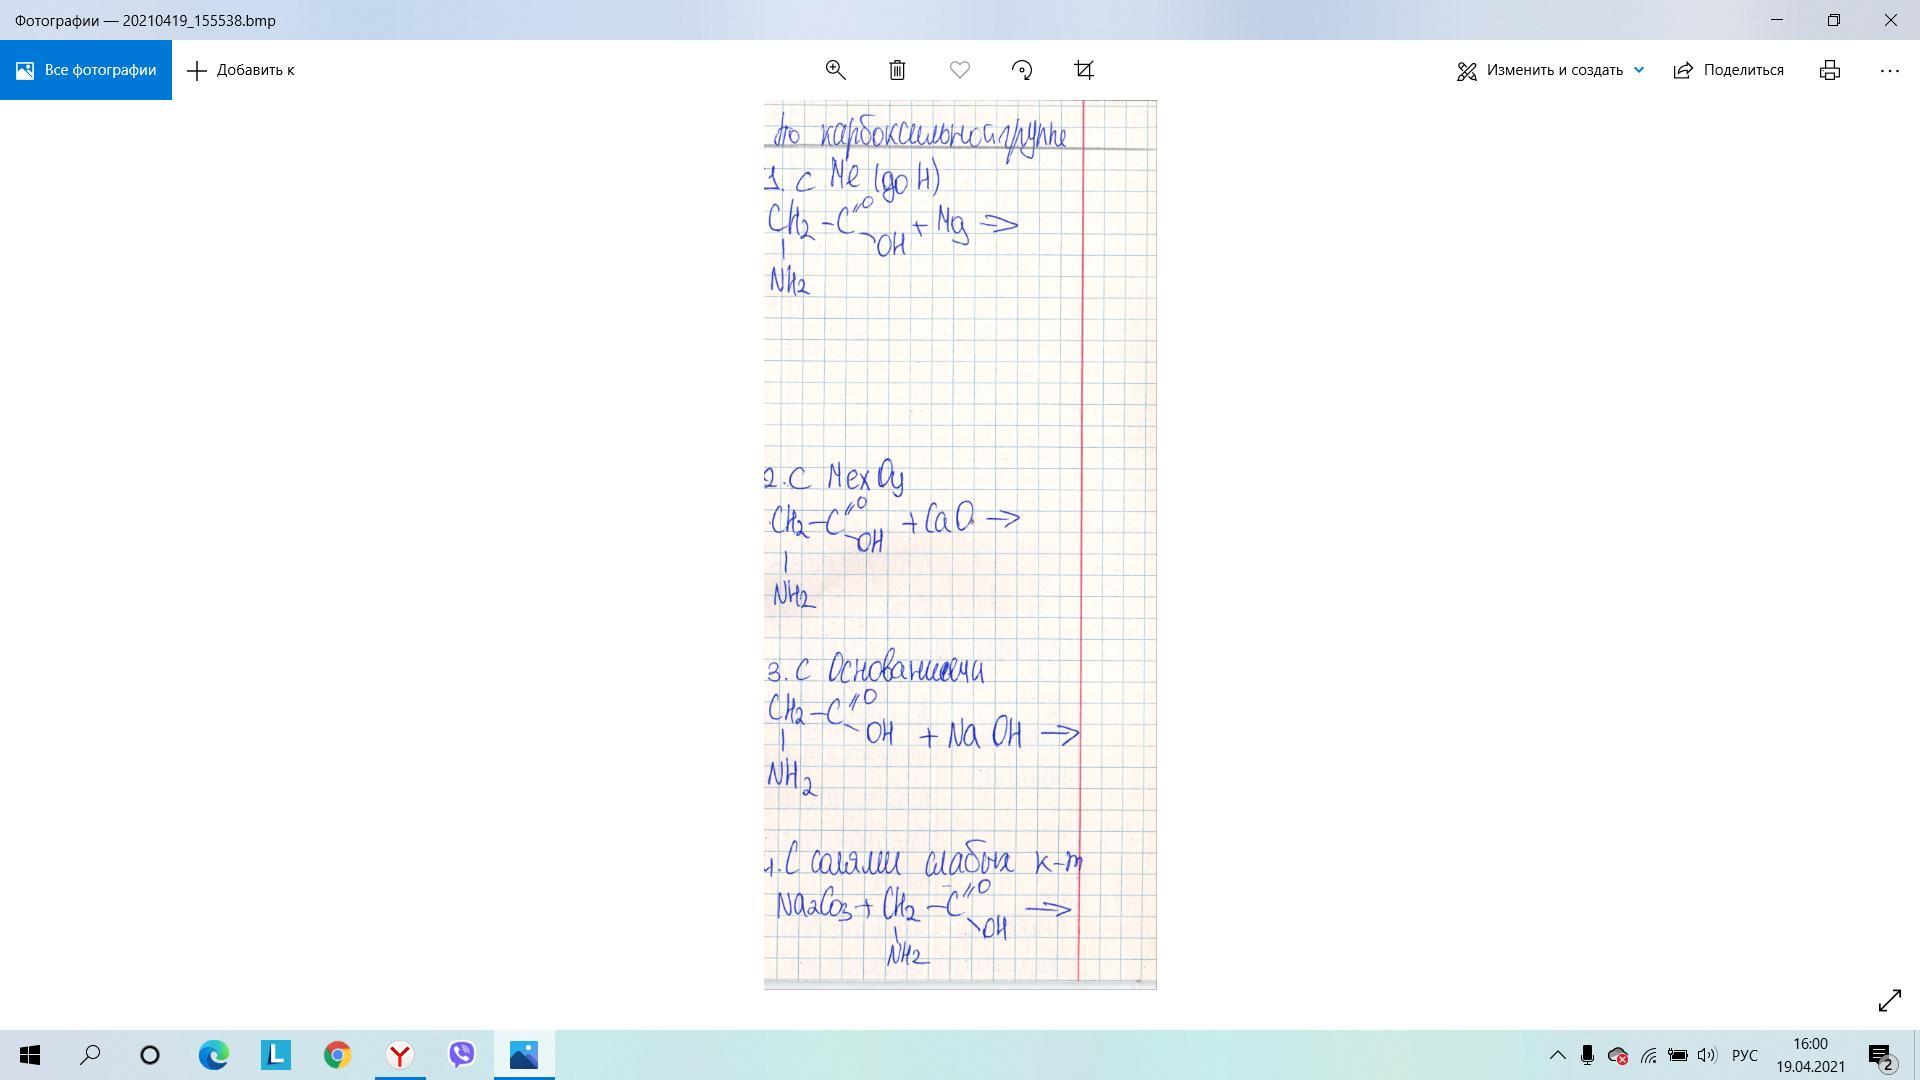 Фотографии — 20210419_155538.bmp
Все фотографии
Добавить к
Изменить и создать
Поделиться
По карбоксильной группе
1. С Ме (до Н)
CH2 – C =O
OH + Mg ⇒
NH2
2. С МехОу
CH2 – C =O
OH + CaO →
NH2
3. С Основаниями
CH2 – C =O
OH + NaOH →
NH2
4. С солями слабых к-т
Na2CO3 + CH2 – C =O
OH →
NH2
L
Y
РУС
16:00
19.04.2021
2